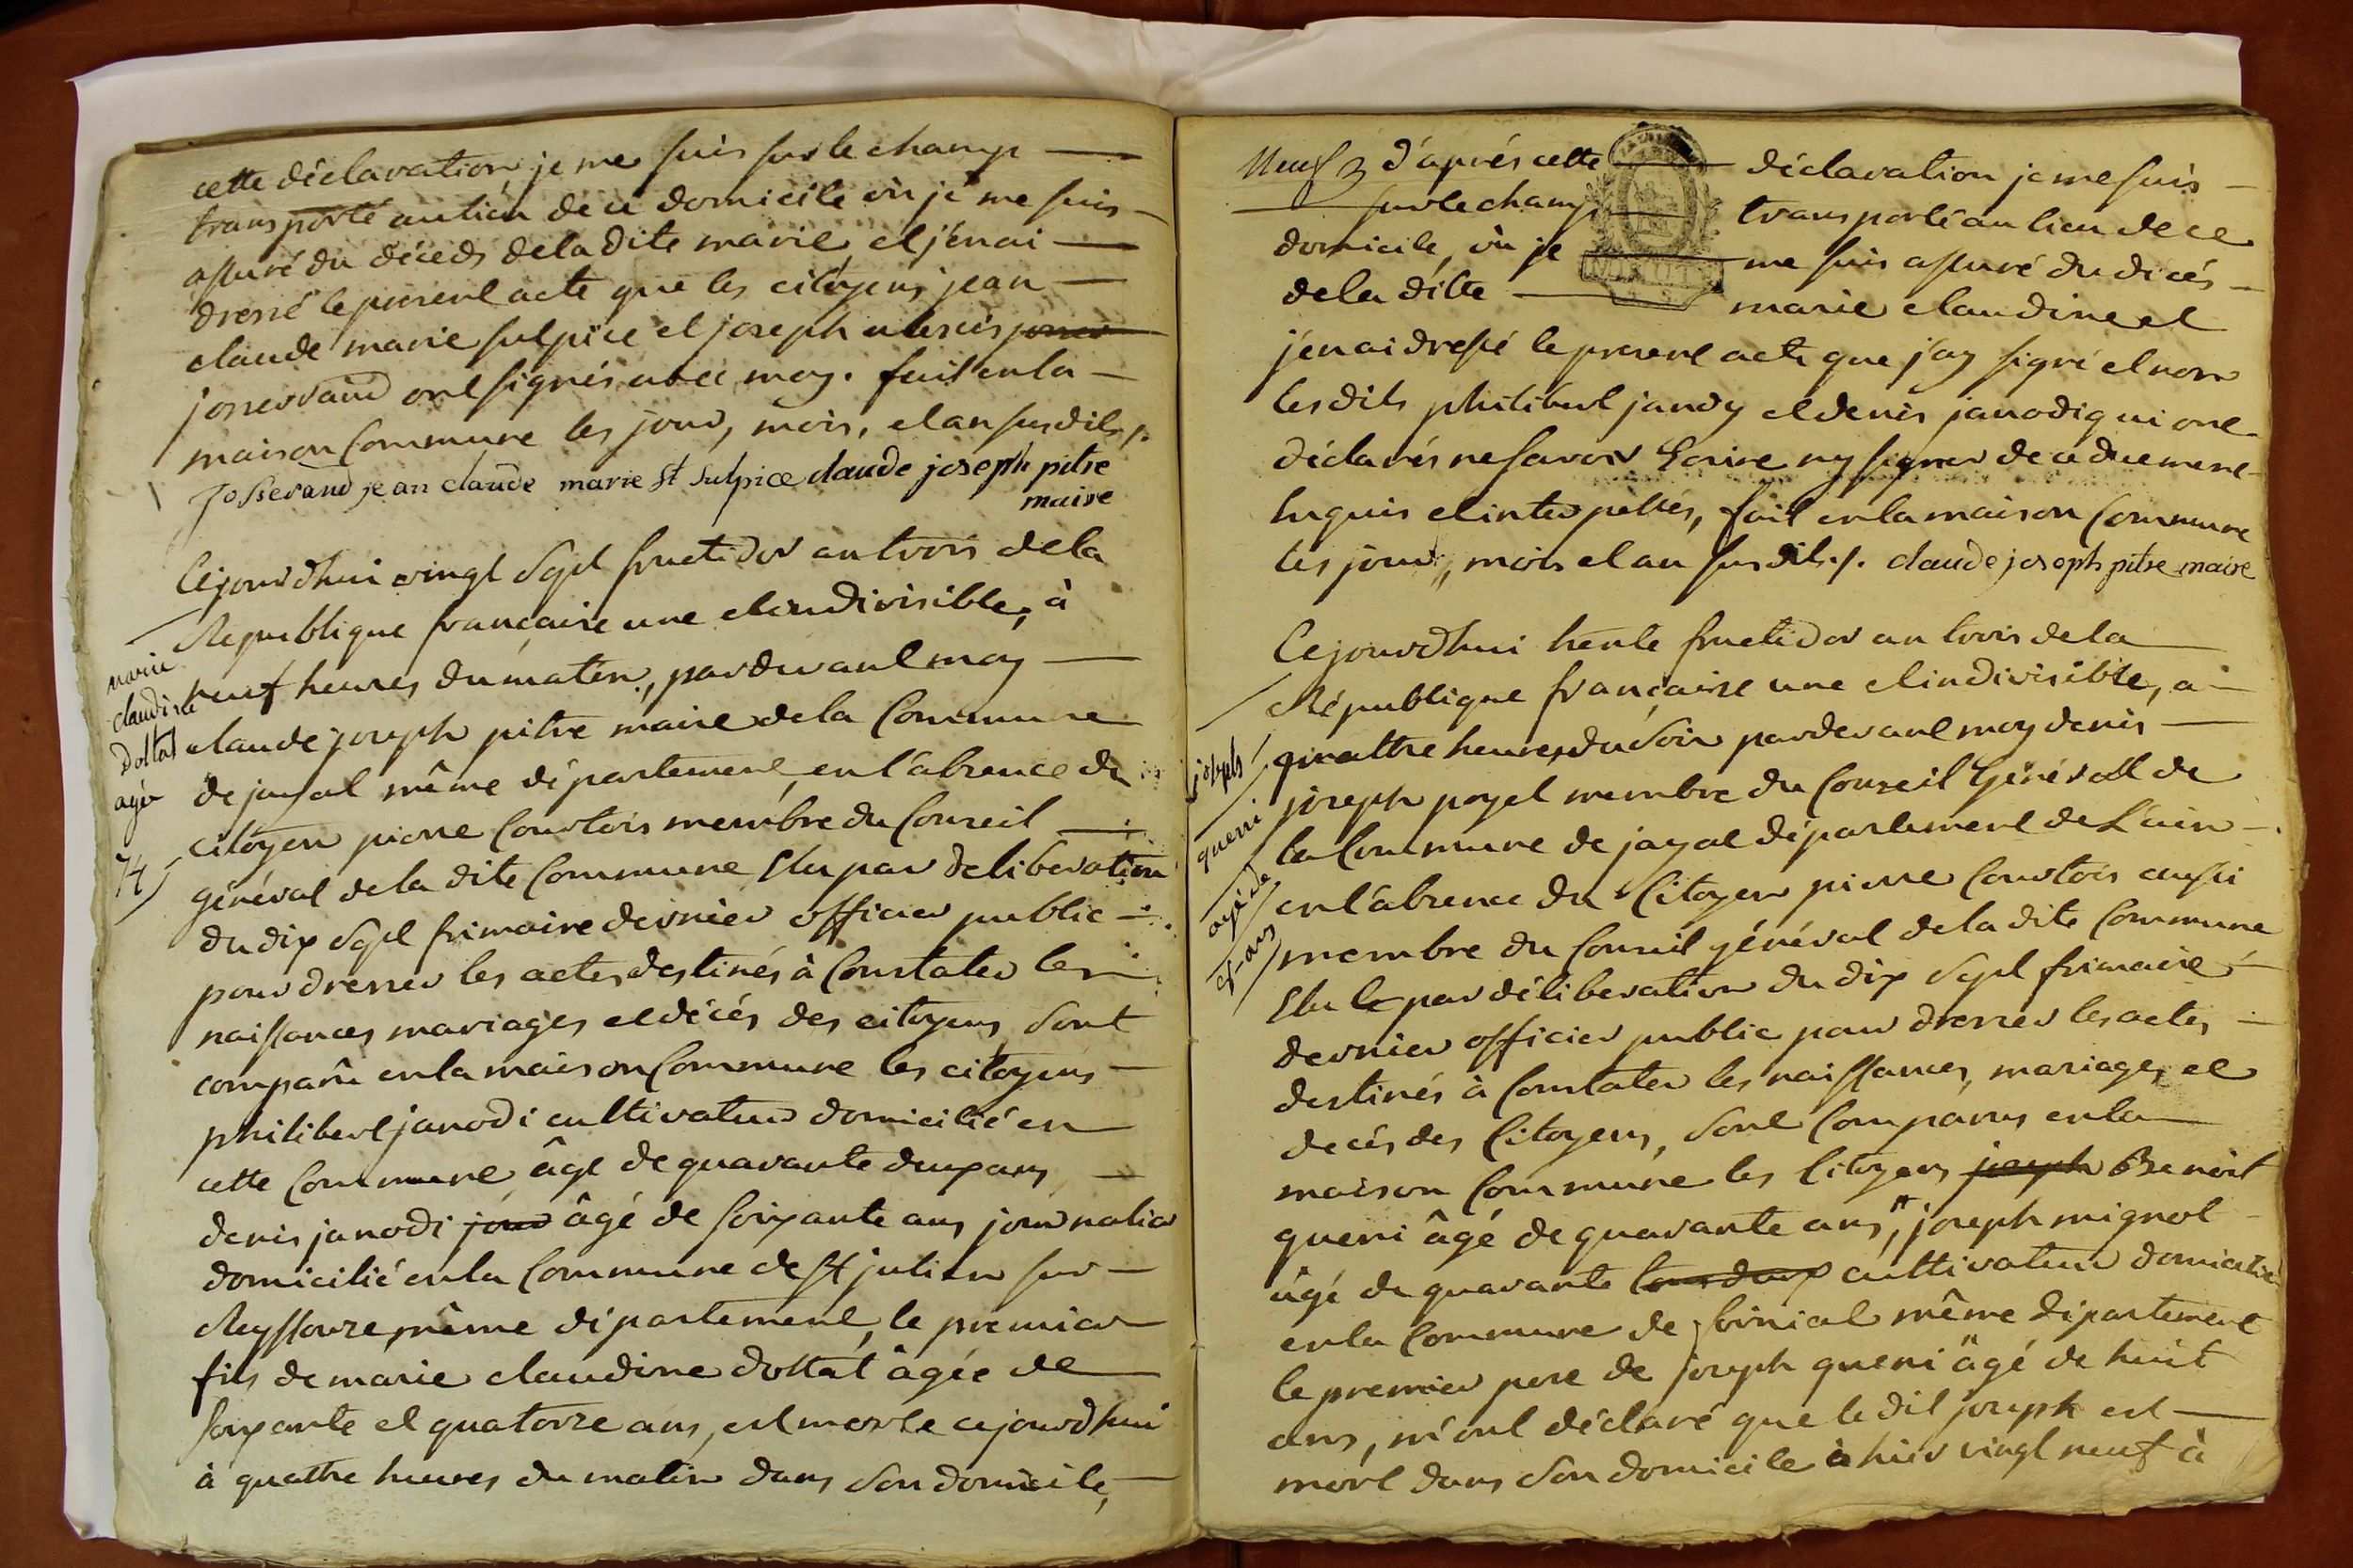 cette déclaration, je me suis sur le champ
transporté au lieu de ce domicile où je me suis
assuré du décéds de la dite marie et j'en ai
dressé le present acte que les citoyens jean
claude marie sulpice et joseph
josserand ont signés avec moy. fait en la
maison Commune les jour, mois, et an susdits ./.
Josserand jean claude marie st Sulpice claude joseph pitre
maire
Cejourdhui vingt Sept fructidor an trois de la
République française une et indivisible, à
neuf heures du matin, pardevant moy
claude joseph pitre maire de la Commune
de jayat même département, en l'absence du
citoyen pierre Courtois membre du Conseil
général de la dite Commune Elu par deliberation
du dix Sept frimaire dernier officier public
pour dresser les actes destinés à Constater les
naissances mariages et décés des citoyens Sont
comparu en la maison Commune les citoyens
philibert janodi cultivateur domicilié en
cette Commune âgé de quarante deux ans
denis janodi jour âgé de soixante ans journalier
domicilié en la Commune de St julien sur
Reyssouze, même département, le premier
fils de marie claudine dottat âgée de
soixante et quatorze ans, est morte cejourdhui
à quatre heures du matin dans Son domicile,
marie
claudine
dottat
agée
74
Neuf d'aprés cette déclaration je me suis
sur le champ transporté au lieu de ce
domicile, où je me suis assuré du décés
de la ditte marie claudine et
j'en ai dressé le present acte que j'ay signé et non
les dits philibert jandy et denis janodi qui ont
déclarés ne savoir Ecrire ny signer de ce duement
enquis et interpellés, fait en la maison Commune
les jour, mois et an susdit ./. claude joseph pitre maire
Cejourdhui trente fructidor an trois de la
République française une et indivisible, a
quattre heures du Soir pardevant moy denis
joseph poyet membre du Conseil Général de
la Commune de jayat département de L'ain
en l'absence du Citoyen pierre Courtois aussi
membre du Conseil général de la dite Commune
Elu le par délibération du dix Sept frimaire
dernier officier public pour dresser les actes
destinés à Constater les naissances, mariages et
decés des Citoyens, Sont Comparus en la
maison Commune les Citoyens joseph Benoist
queni âgé de quarante ans, joseph mignot
âgé de quarante tous deux cultivateur domicilié
en la Commune de même département
le premier pere de joseph queni âgé de huit
ans, m'ont déclaré que le dit joseph est
mort dans Son domicile à hier vingt neuf à
joseph
queni
agé de
8 ans